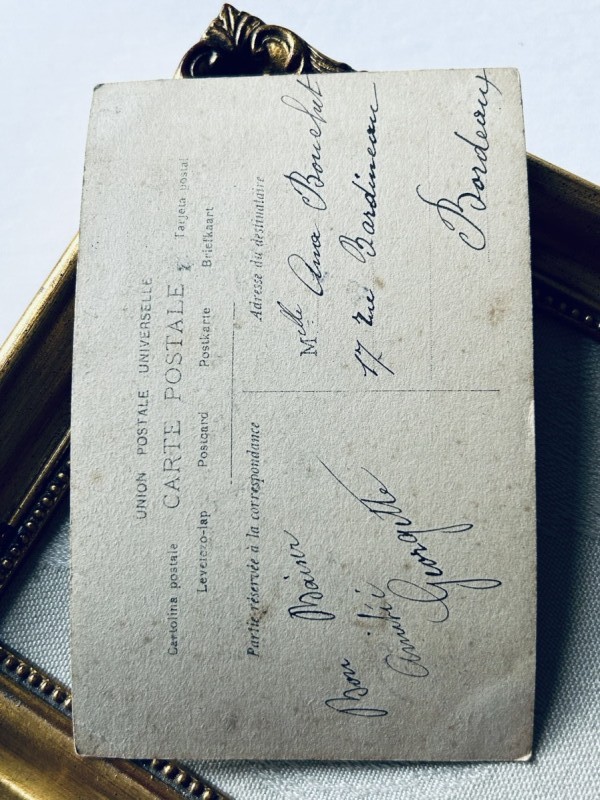 UNION POSTALE UNIVERSELLE
CARTE POSTALE
Cartolina postale Tarjeta postal
Levelezo-lap Postcard Postkarte Briefkaart
Partie réservée à la correspondance
Bon Baiser
Amitié
Georgette
Adresse du destinataire
Melle Ana Bouchet
17 rue Bardineau
Bordeaux